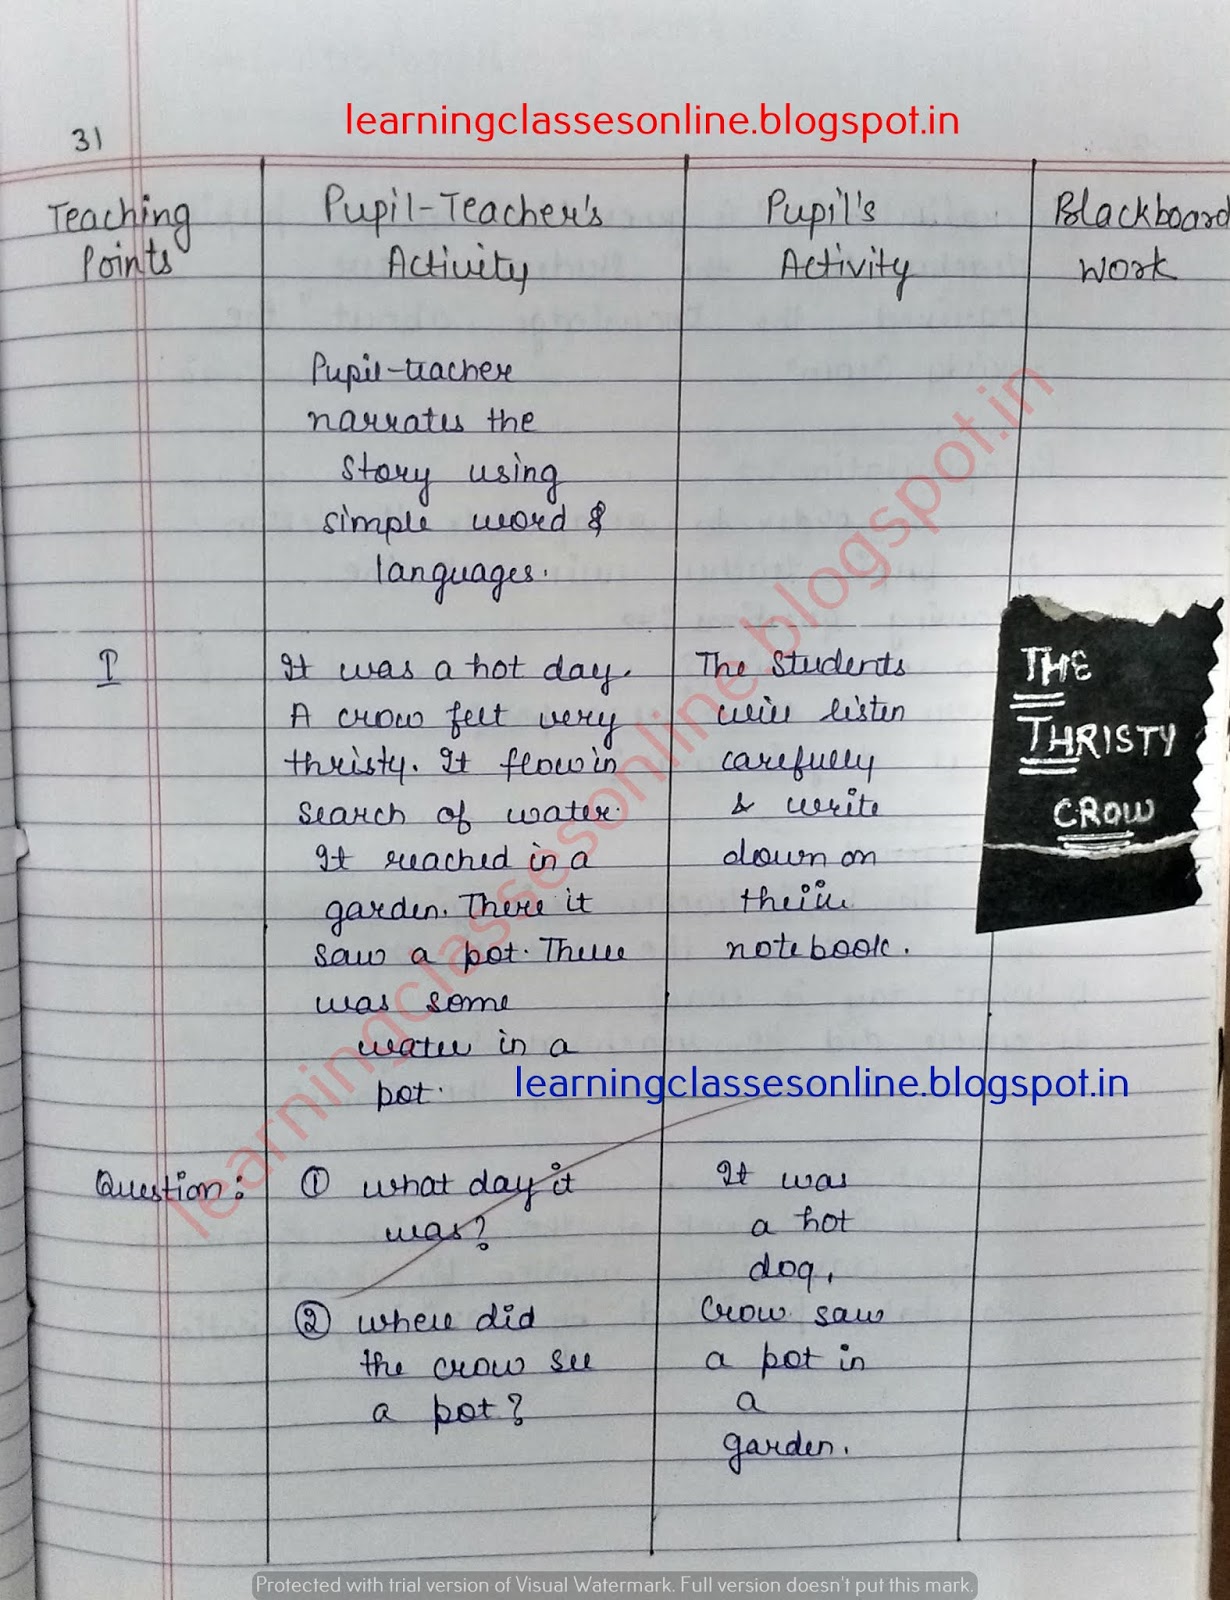 learningclassesonline.blogspot.in
31
Teaching
Points
Pupil-Teacher's
Activity
Pupil's
Activity
Blackboard
Work
Pupil-teacher
narrates the
story using
simple word &
languages.
I
It was a hot day.
A crow felt very
thristy. It flow in
search of water.
It reached in a
garden. There it
saw a pot. There
was some
water in a
pot.
The Students
will listen
carefully
& write
down on
theiir
notebook.
THE
THRISTY
CROW
learningclassesonline.blogspot.in
learningclassesonline.blogspot.in
Question:
① what day it
was?
It was
a hot
dog.
② where did
the crow see
a pot?
Crow saw
a pot in
a
garden.
Protected with trial version of Visual Watermark. Full version doesn't put this mark.